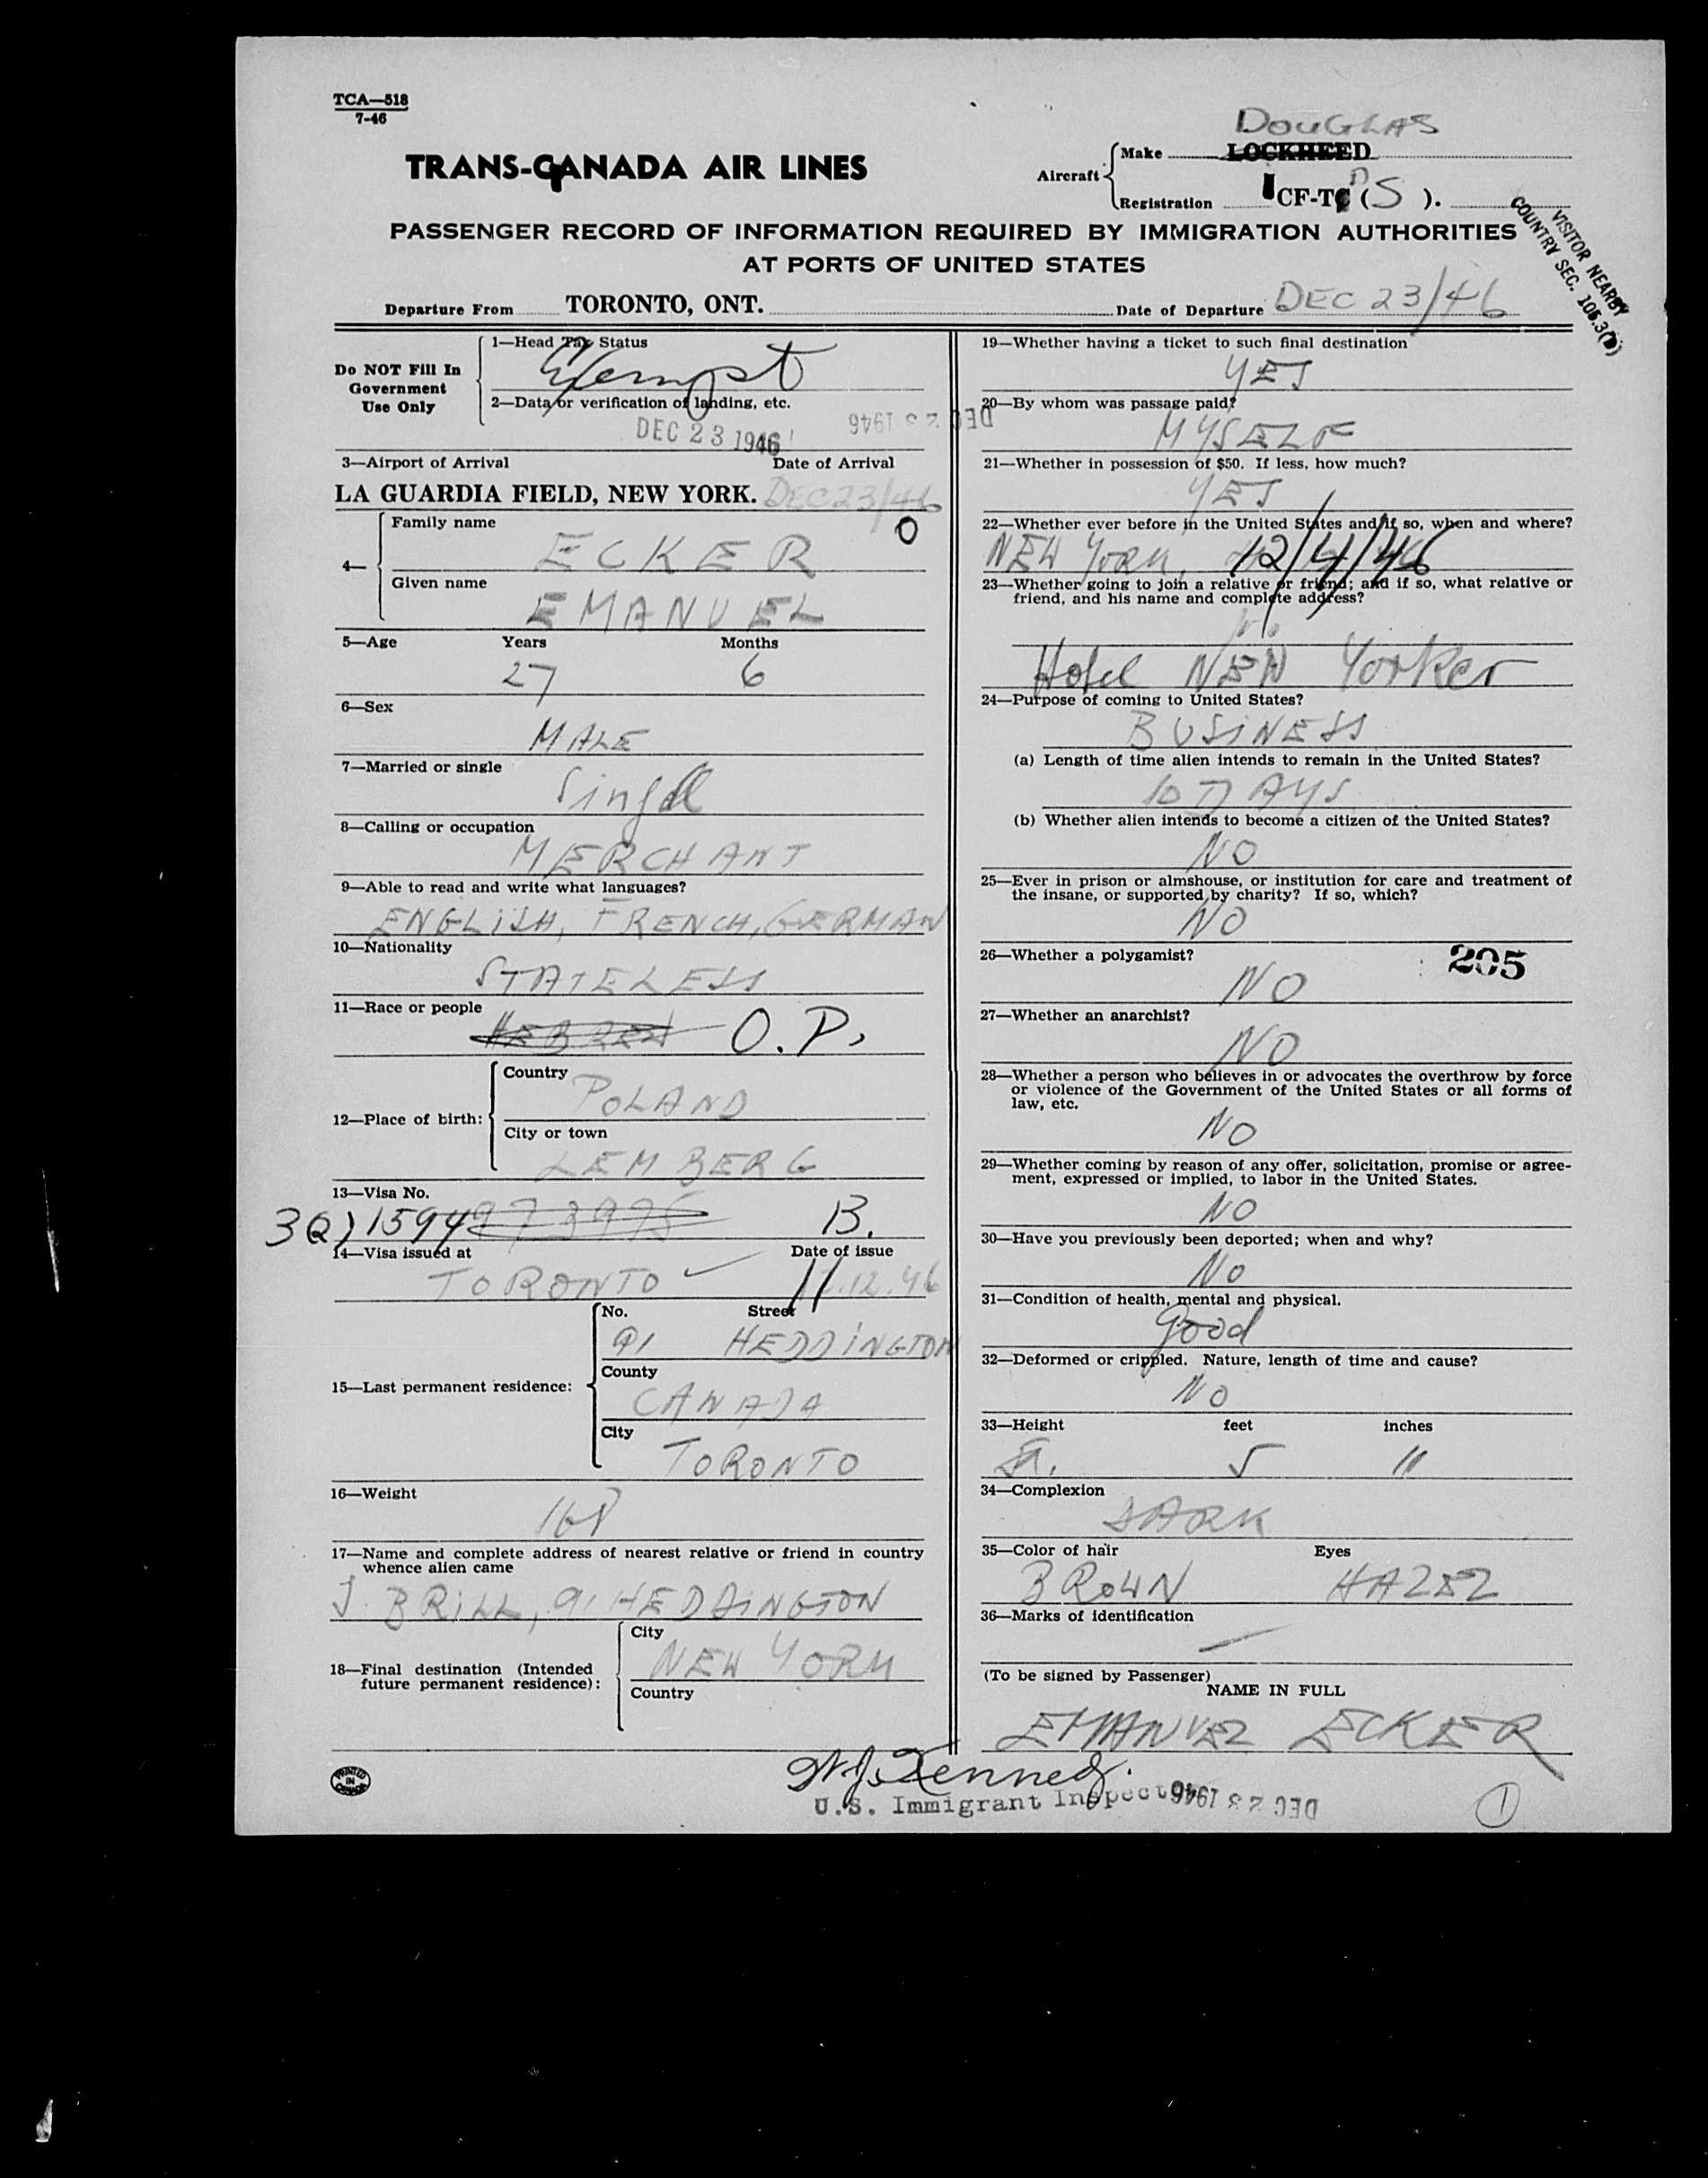 TCA—518
7-46
TRANS-CANADA AIR LINES
Aircraft
DOUGLAS
Make LOCKHEED
Registration CF-T D (S ).
PASSENGER RECORD OF INFORMATION REQUIRED BY IMMIGRATION AUTHORITIES
AT PORTS OF UNITED STATES
VISITOR NEARBY
COUNTRY SEC. 105.3(b)
Departure From TORONTO, ONT. Date of Departure DEC 23/46
Do NOT Fill In
Government
Use Only
1—Head Tax Status
Exempt
2—Data or verification of landing, etc.
DEC 23 1946
DEC 23 1946
3—Airport of Arrival Date of Arrival
LA GUARDIA FIELD, NEW YORK. DEC 23/46
4—
Family name
0
ECKER
Given name
EMANUEL
5—Age Years Months
27 6
6—Sex
MALE
7—Married or single
Singel
8—Calling or occupation
MERCHANT
9—Able to read and write what languages?
ENGLISH, FRENCH, GERMAN
10—Nationality
STATELESS
11—Race or people
HEBREW O.P.
12—Place of birth:
Country
POLAND
City or town
LEMBERG
13—Visa No.
3(2) 1594 973995 B.
14—Visa issued at Date of issue
TORONTO 11.12.46
15—Last permanent residence:
No. Street
91 HEDDINGTON
County
CANADA
City
TORONTO
16—Weight
168
17—Name and complete address of nearest relative or friend in country
whence alien came
J. BRILL, 91 HEDDINGTON
18—Final destination (Intended
future permanent residence):
City
NEW YORK
Country
PRINTED
IN
CANADA
19—Whether having a ticket to such final destination
YES
20—By whom was passage paid?
MYSELF
21—Whether in possession of $50. If less, how much?
YES
22—Whether ever before in the United States and if so, when and where?
NEW YORK, 12/4/46
23—Whether going to join a relative or friend; and if so, what relative or
friend, and his name and complete address?
Hotel NEW Yorker
24—Purpose of coming to United States?
BUSINESS
(a) Length of time alien intends to remain in the United States?
10 DAYS
(b) Whether alien intends to become a citizen of the United States?
NO
25—Ever in prison or almshouse, or institution for care and treatment of
the insane, or supported by charity? If so, which?
NO
26—Whether a polygamist?
205
NO
27—Whether an anarchist?
NO
28—Whether a person who believes in or advocates the overthrow by force
or violence of the Government of the United States or all forms of
law, etc.
NO
29—Whether coming by reason of any offer, solicitation, promise or agree-
ment, expressed or implied, to labor in the United States.
NO
30—Have you previously been deported; when and why?
No
31—Condition of health, mental and physical.
good
32—Deformed or crippled. Nature, length of time and cause?
NO
33—Height feet inches
5 11
34—Complexion
DARK
35—Color of hair Eyes
BROWN HAZEL
36—Marks of identification
—
(To be signed by Passenger)
NAME IN FULL
EMANUEL ECKER
W.J. Kennedy.
U.S. Immigrant Inspector
DEC 23 1946
1